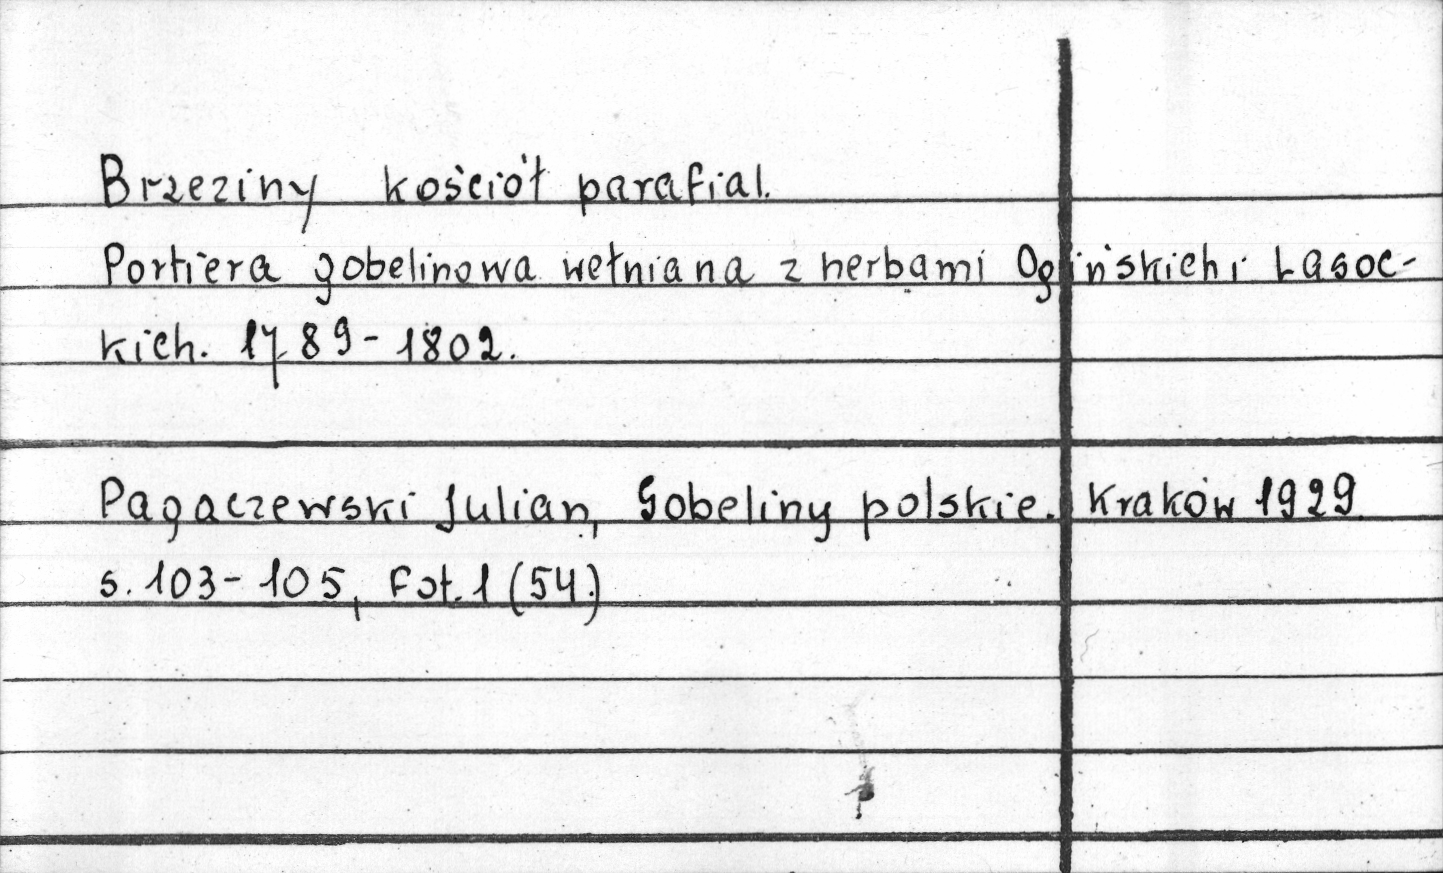 Brzeziny kościół parafial.
Portiera gobelinowa wełniana z herbami Ogińskich i Lasoc-
kich. 1789-1802.
Pagaczewski Julian, Gobeliny polskie. Kraków 1929
s. 103-105, Fot. 1 (54.)